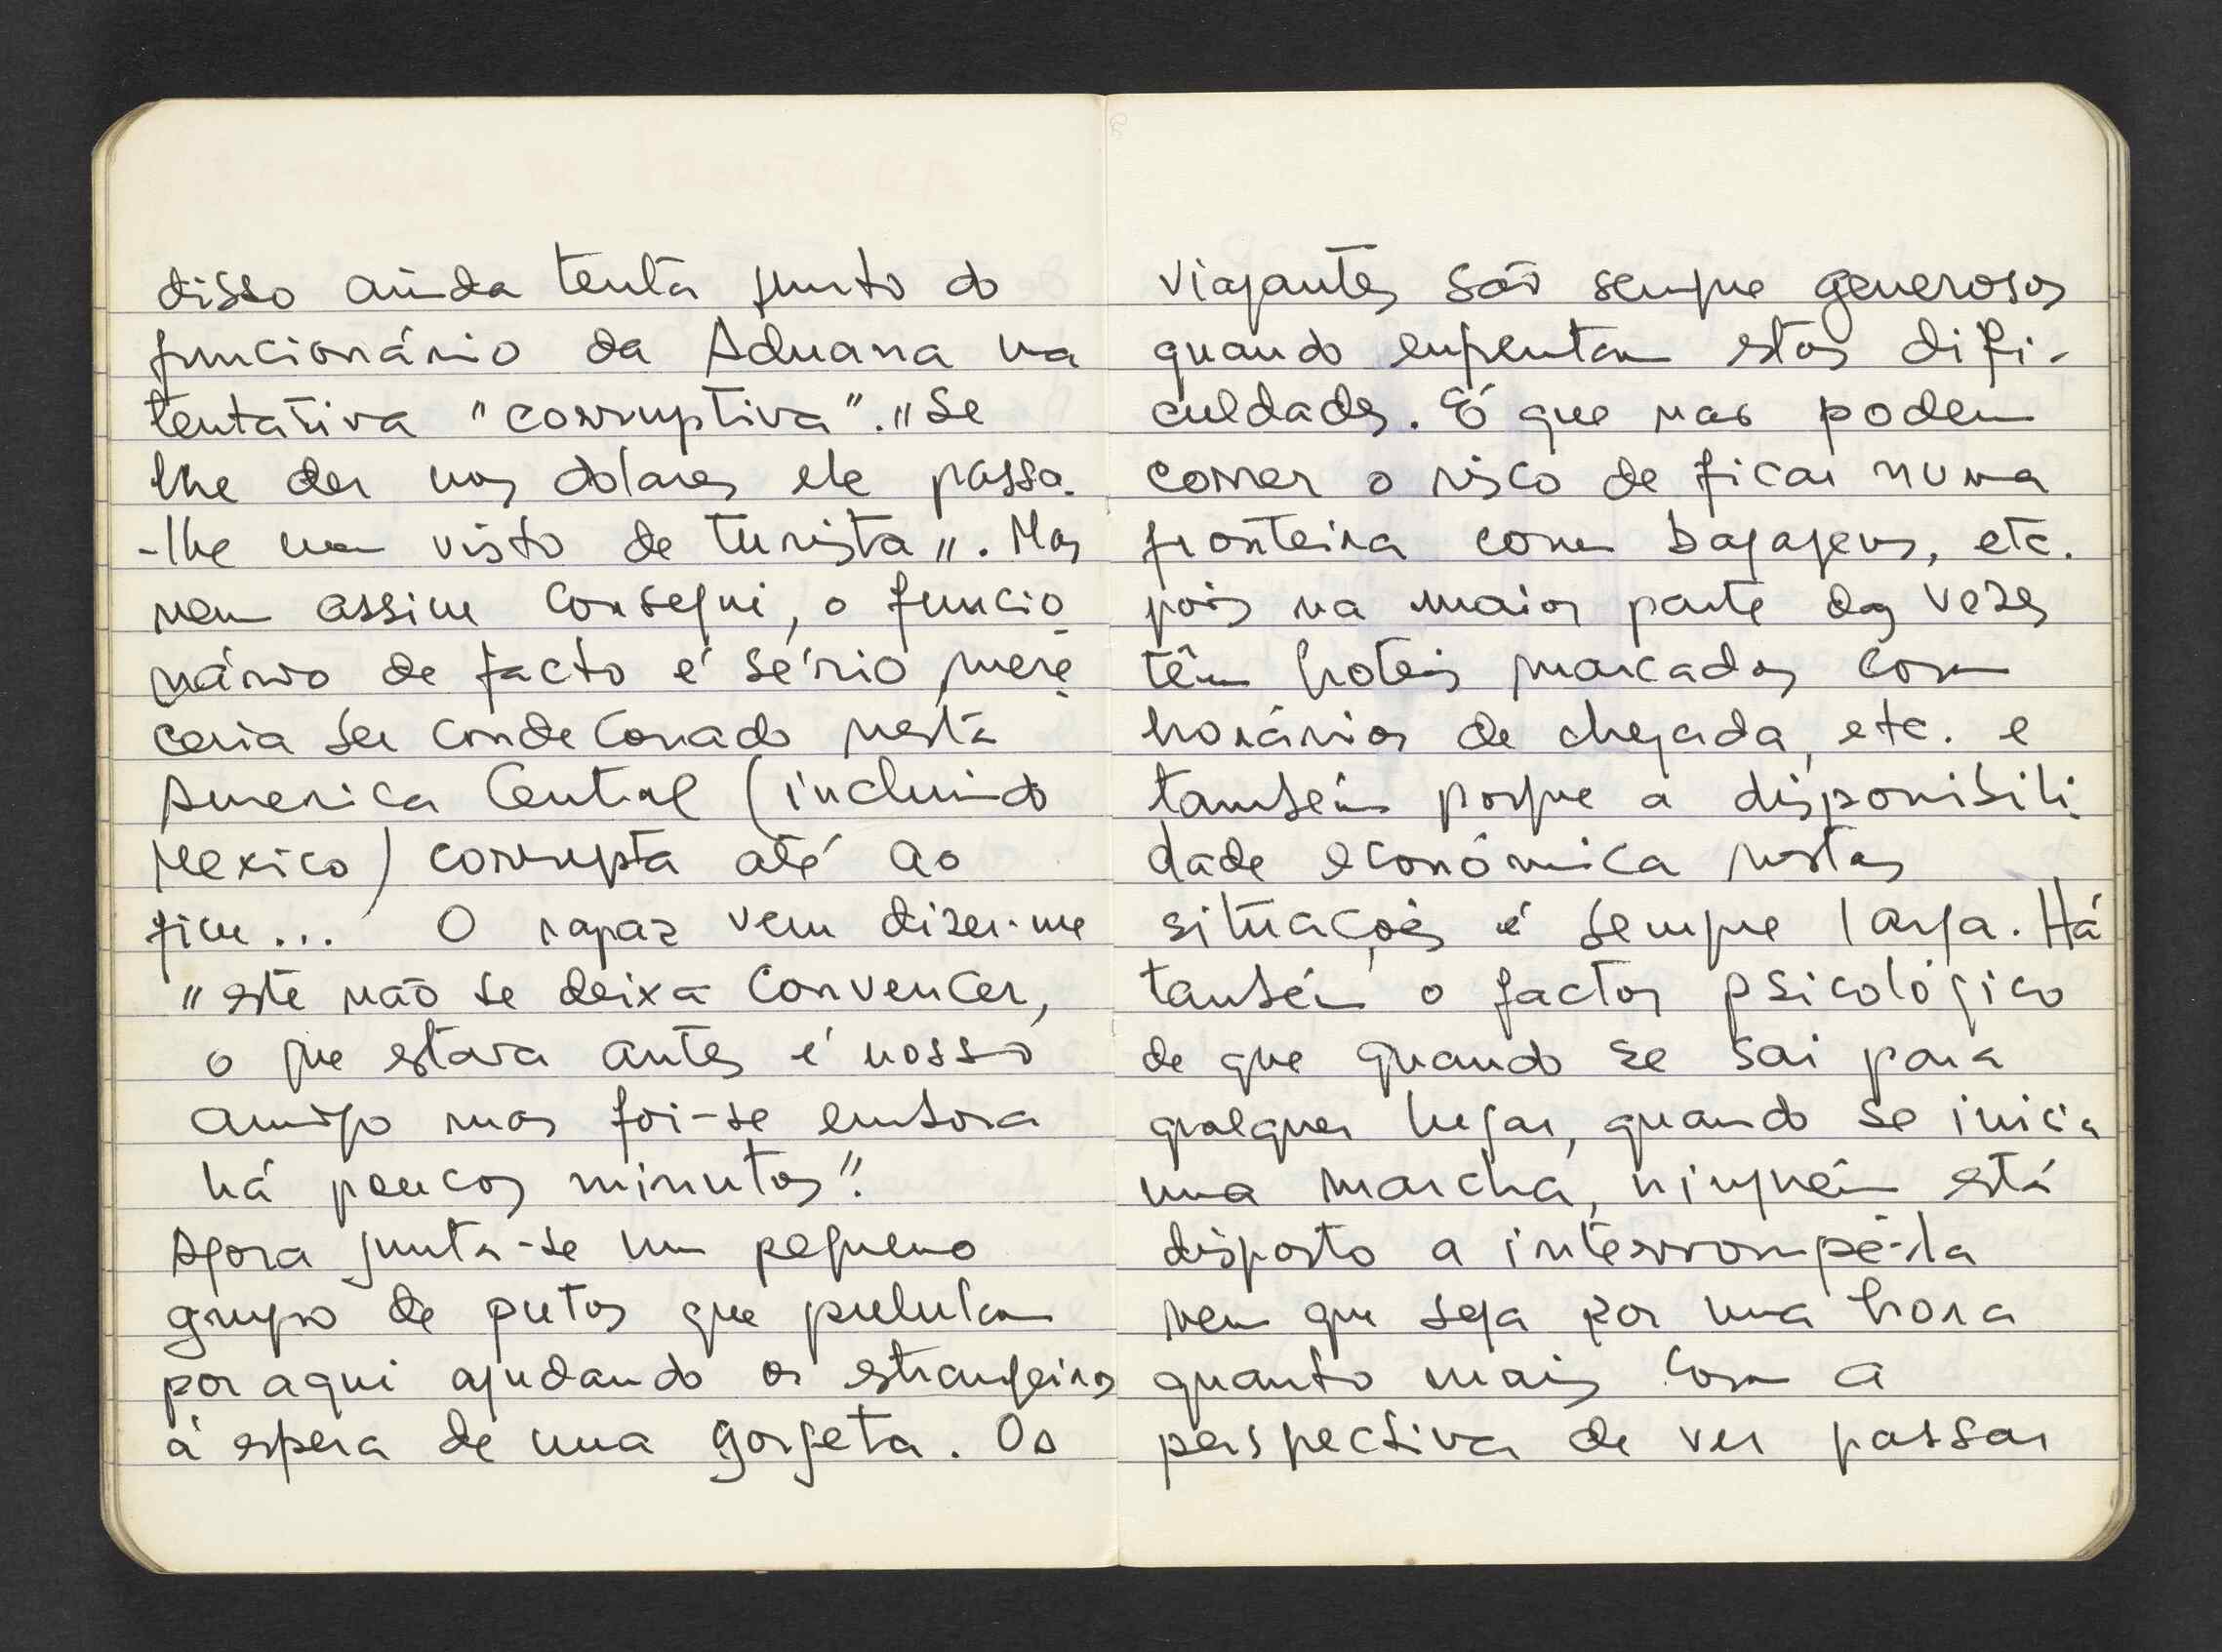 disso ainda tenta junto do
funcionário da Aduana na
tentativa "corruptiva". "Se
lhe der uns dolares ele passa-
-lhe um visto de turista". Mas
nem assim consegui, o funcio
nário de facto é sério, mere
ceria ser condecorado nesta
America Central (incluindo
Mexico) corrupta até ao
fim... O rapaz vem dizer-me
"este não se deixa convencer,
o que estava antes é nosso
amigo mas foi-se embora
há poucos minutos".
Agora junta-se um pequeno
grupo de putos que pululam
por aqui ajudando os estrangeiros
á espera de uma gorgeta. Os
viajantes são sempre generosos
quando enfrentam estas difi-
culdades. É que nas podem
correr o risco de ficar numa
fronteira com bagagens, etc.
pois na maior parte das vezes
têm hoteis marcados com
horários de chegada, etc. e
também porque a disponibili
dade económica nestas
situações é sempre larga. Há
também o factor psicológico
de que quando se sai para
qualquer lugar, quando se inicia
uma marcha, ninguém está
disposto a interrompê-la
nem que seja por uma hora
quanto mais com a
perspectiva de ver passar